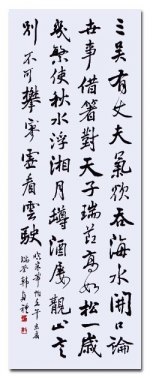 三吴有丈夫氣欲吞海水開口論
世事借箸對天子瑞芝高如松一歲
幾繁使秋水浮湘月罇酒屡觀山云
别不可攀寥虚看雲駛